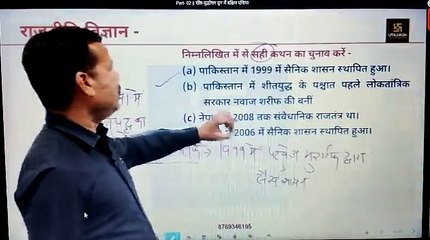 Part 02 || शीत-युद्धोत्तर युग में दक्षिण एशिया
राजनीति विज्ञान -
UTKARSH
निम्नलिखित में से सही कथन का चुनाव करें -
(a) पाकिस्तान में 1999 में सैनिक शासन स्थापित हुआ।
(b) पाकिस्तान में शीतयुद्ध के पश्चात पहले लोकतांत्रिक
सरकार नवाज शरीफ की बनीं
(c) 2008 तक संवैधानिक राजतंत्र था।
2006 में सैनिक शासन स्थापित हुआ।
1999 में परवेज मुशर्रफ द्वारा
सैन्य शासन
6769346195